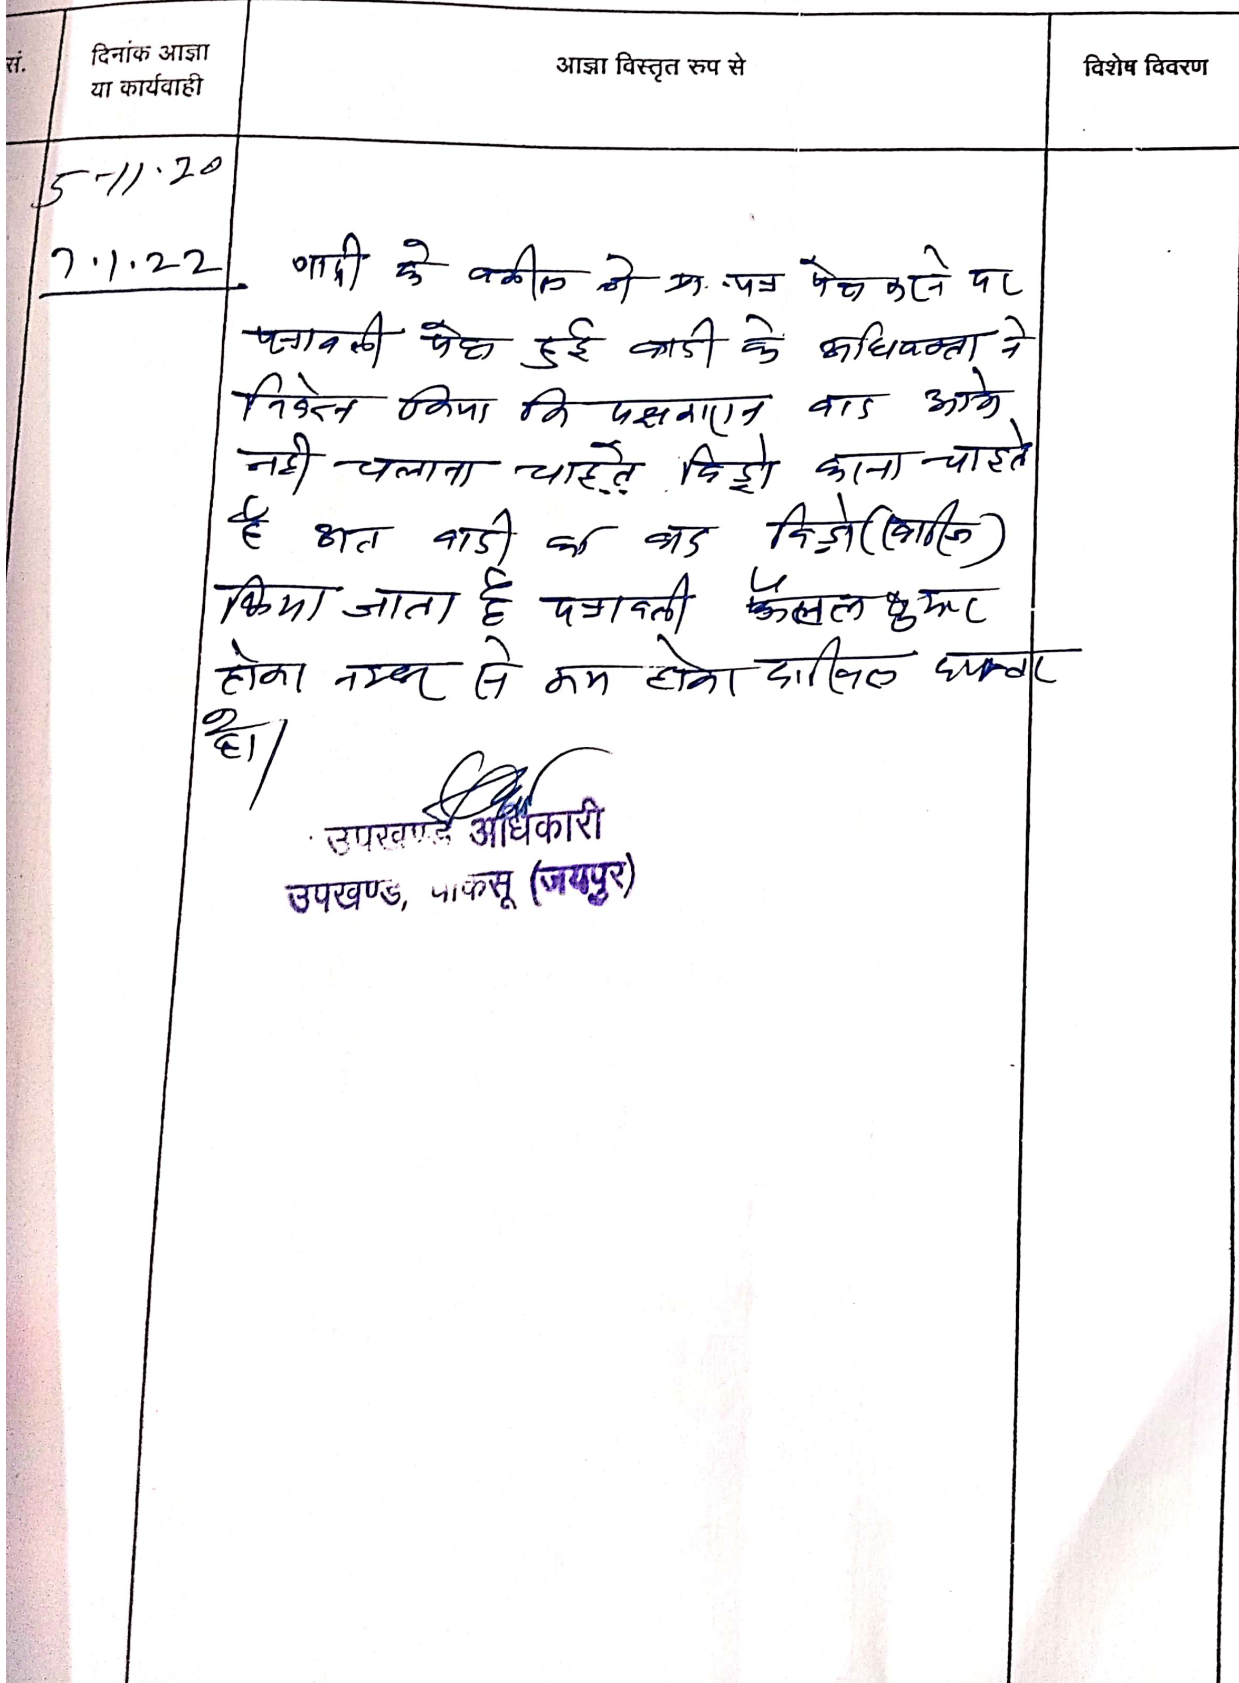 सं.
दिनांक आज्ञा
या कार्यवाही
आज्ञा विस्तृत रुप से
विशेष विवरण
5-11-20
7.1.22
वादी के वकील ने प्रा. पत्र पेश करने पर
पत्रावली पेश हुई वादी के अधिवक्ता ने
निवेदन किया कि पक्षकारान वाद आगे
नही चलाना चाहते विड्रो करना चाहते
है अत वादी का वाद विड्रो (खारिज)
किया जाता है पत्रावली फैसल शुमार
होकर नम्बर से कम होकर दाखिल दफ्तर
हो।
उपखण्ड अधिकारी
उपखण्ड, चाकसू (जयपुर)